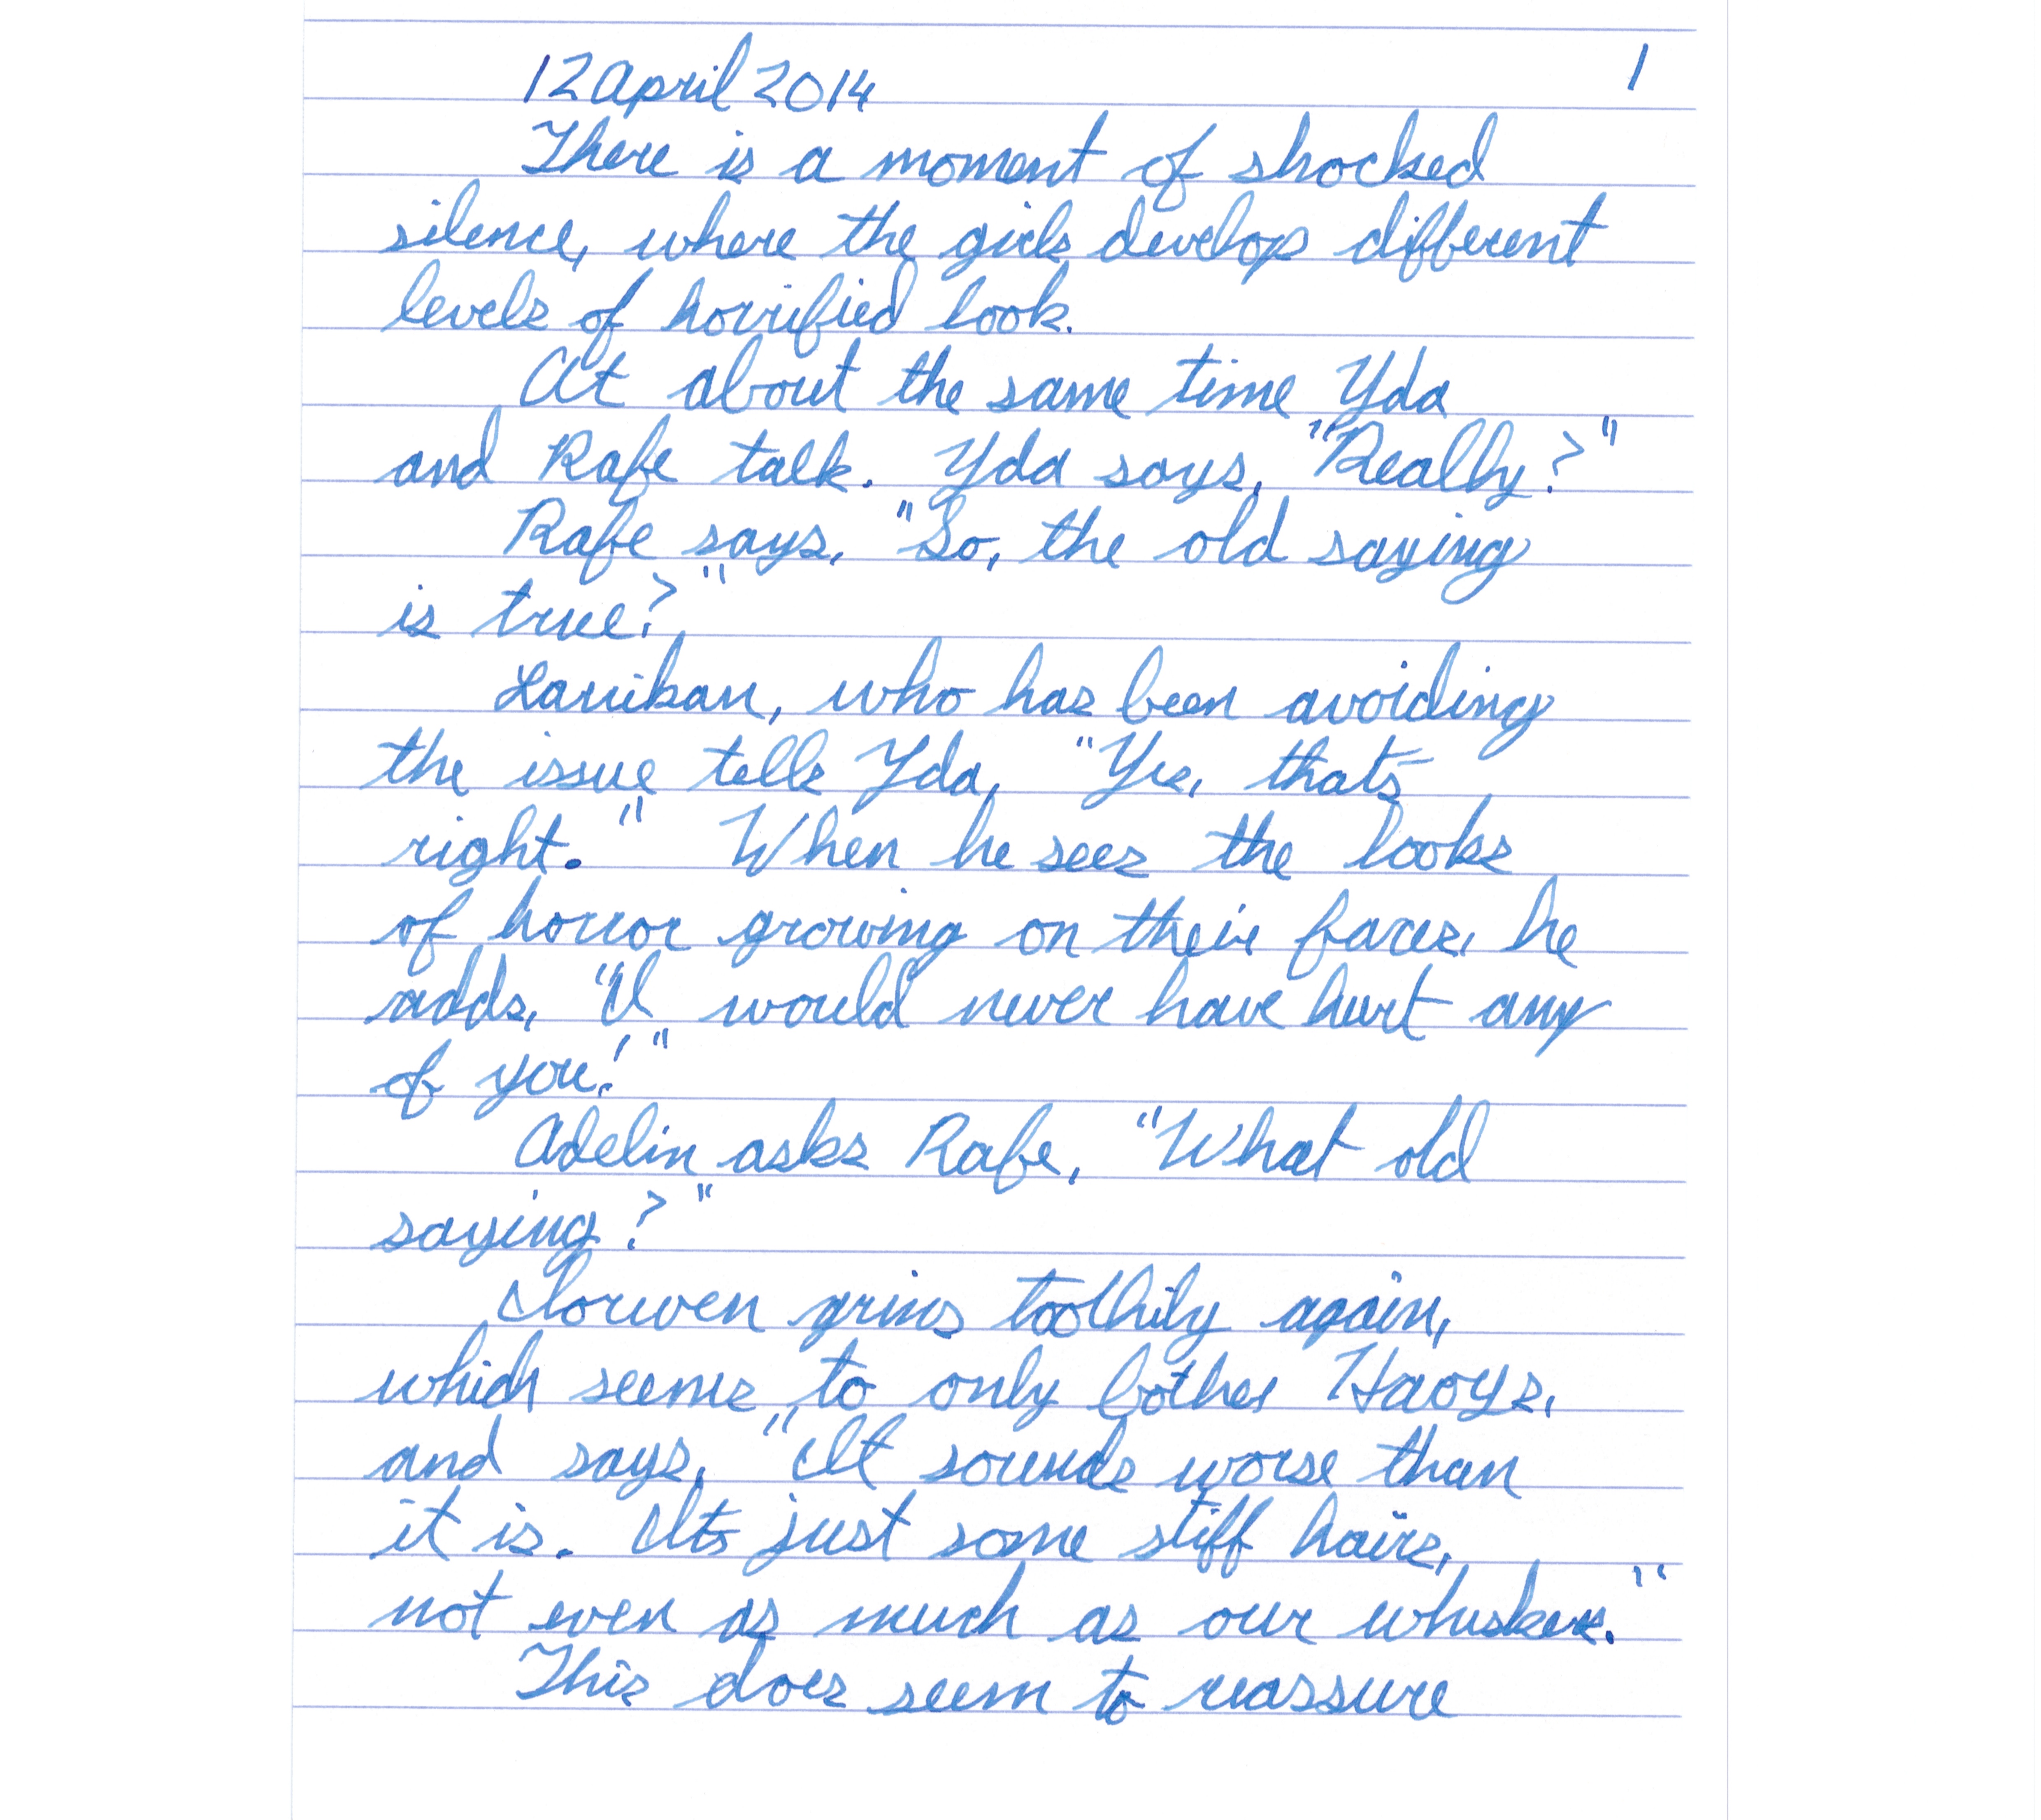 12 April 2014 1
There is a moment of shocked
silence, where the girls develop different
levels of horrified look.
At about the same time Yda
and Rafe talk. Yda says, "Really?"
Rafe says, "So, the old saying
is true?"
Larriban, who has been avoiding
the issue tells Yda, "Yes, that's
right." When he sees the looks
of horror growing on their faces, he
adds, "I would never have hurt any
of you!"
Adelin asks Rafe, "What old
saying?"
Iorwen grins toothily again,
which seems to only bother Haoys,
and says, "It sounds worse than
it is. It's just some stiff hairs,
not even as much as our whiskers."
This does seem to reassure